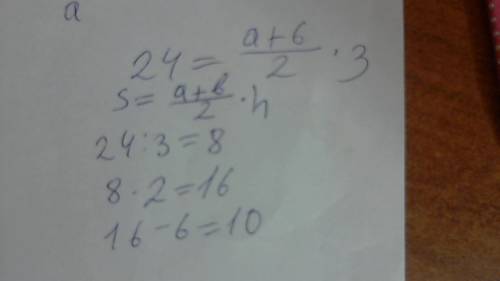 a
24 = a+6/2 · 3
S = a+b/2 · h
24:3=8
8·2=16
16-6=10